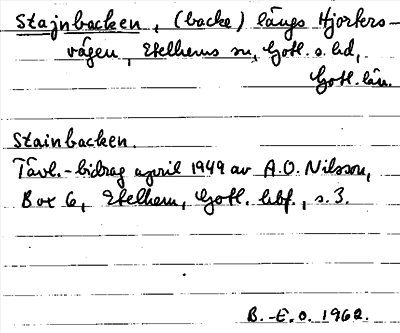 Stajnbacken, (backe) längs Hjorters-
vägen, Etelhems sn, Gotl. s. hd,
Gotl. län.
Stainbacken.
Tävl.-bidrag april 1949 av A.O. Nilsson,
Box 6, Etelhem, Gotl. hbf., s. 3.
B.-E. O. 1962.